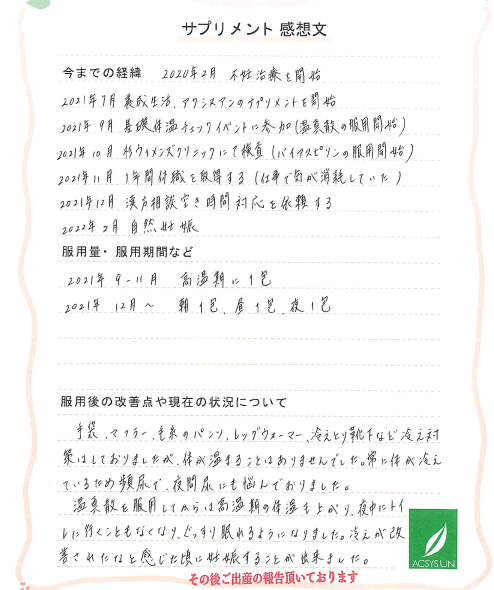 サプリメント 感想文
今までの経緯 2020年2月 不妊治療を開始
2021年7月 養成生活、アクシスアンのサプリメントを開始
2021年9月 基礎体温チェックイベントに参加(温真散の服用開始)
2021年10月 杉ウィメンズクリニックにて検査(バイアスピリンの服用開始)
2021年11月 1年間休職を取得する(仕事で気が消耗していた)
2021年12月 漢方相談空き時間対応を依頼する
2022年2月 自然妊娠
服用量・服用期間など
2021年 9-11月 高温期に1包
2021年 12月〜 朝1包、昼1包、夜1包
服用後の改善点や現在の状況について
手袋、マフラー、毛糸のパンツ、レッグウォーマー、冷えとり靴下など冷え対
策はしておりましたが、体が温まることはありませんでした。常に体が冷え
ているため頻尿で、夜間尿にも悩んでおりました。
温真散を服用してからは高温期の体温も上がり、夜中にトイ
レに行くこともなくなり、ぐっすり眠れるようになりました。冷えが改
善されたなと感じた頃に妊娠することが出来ました。
ACSYSUN
その後ご出産の報告頂いております